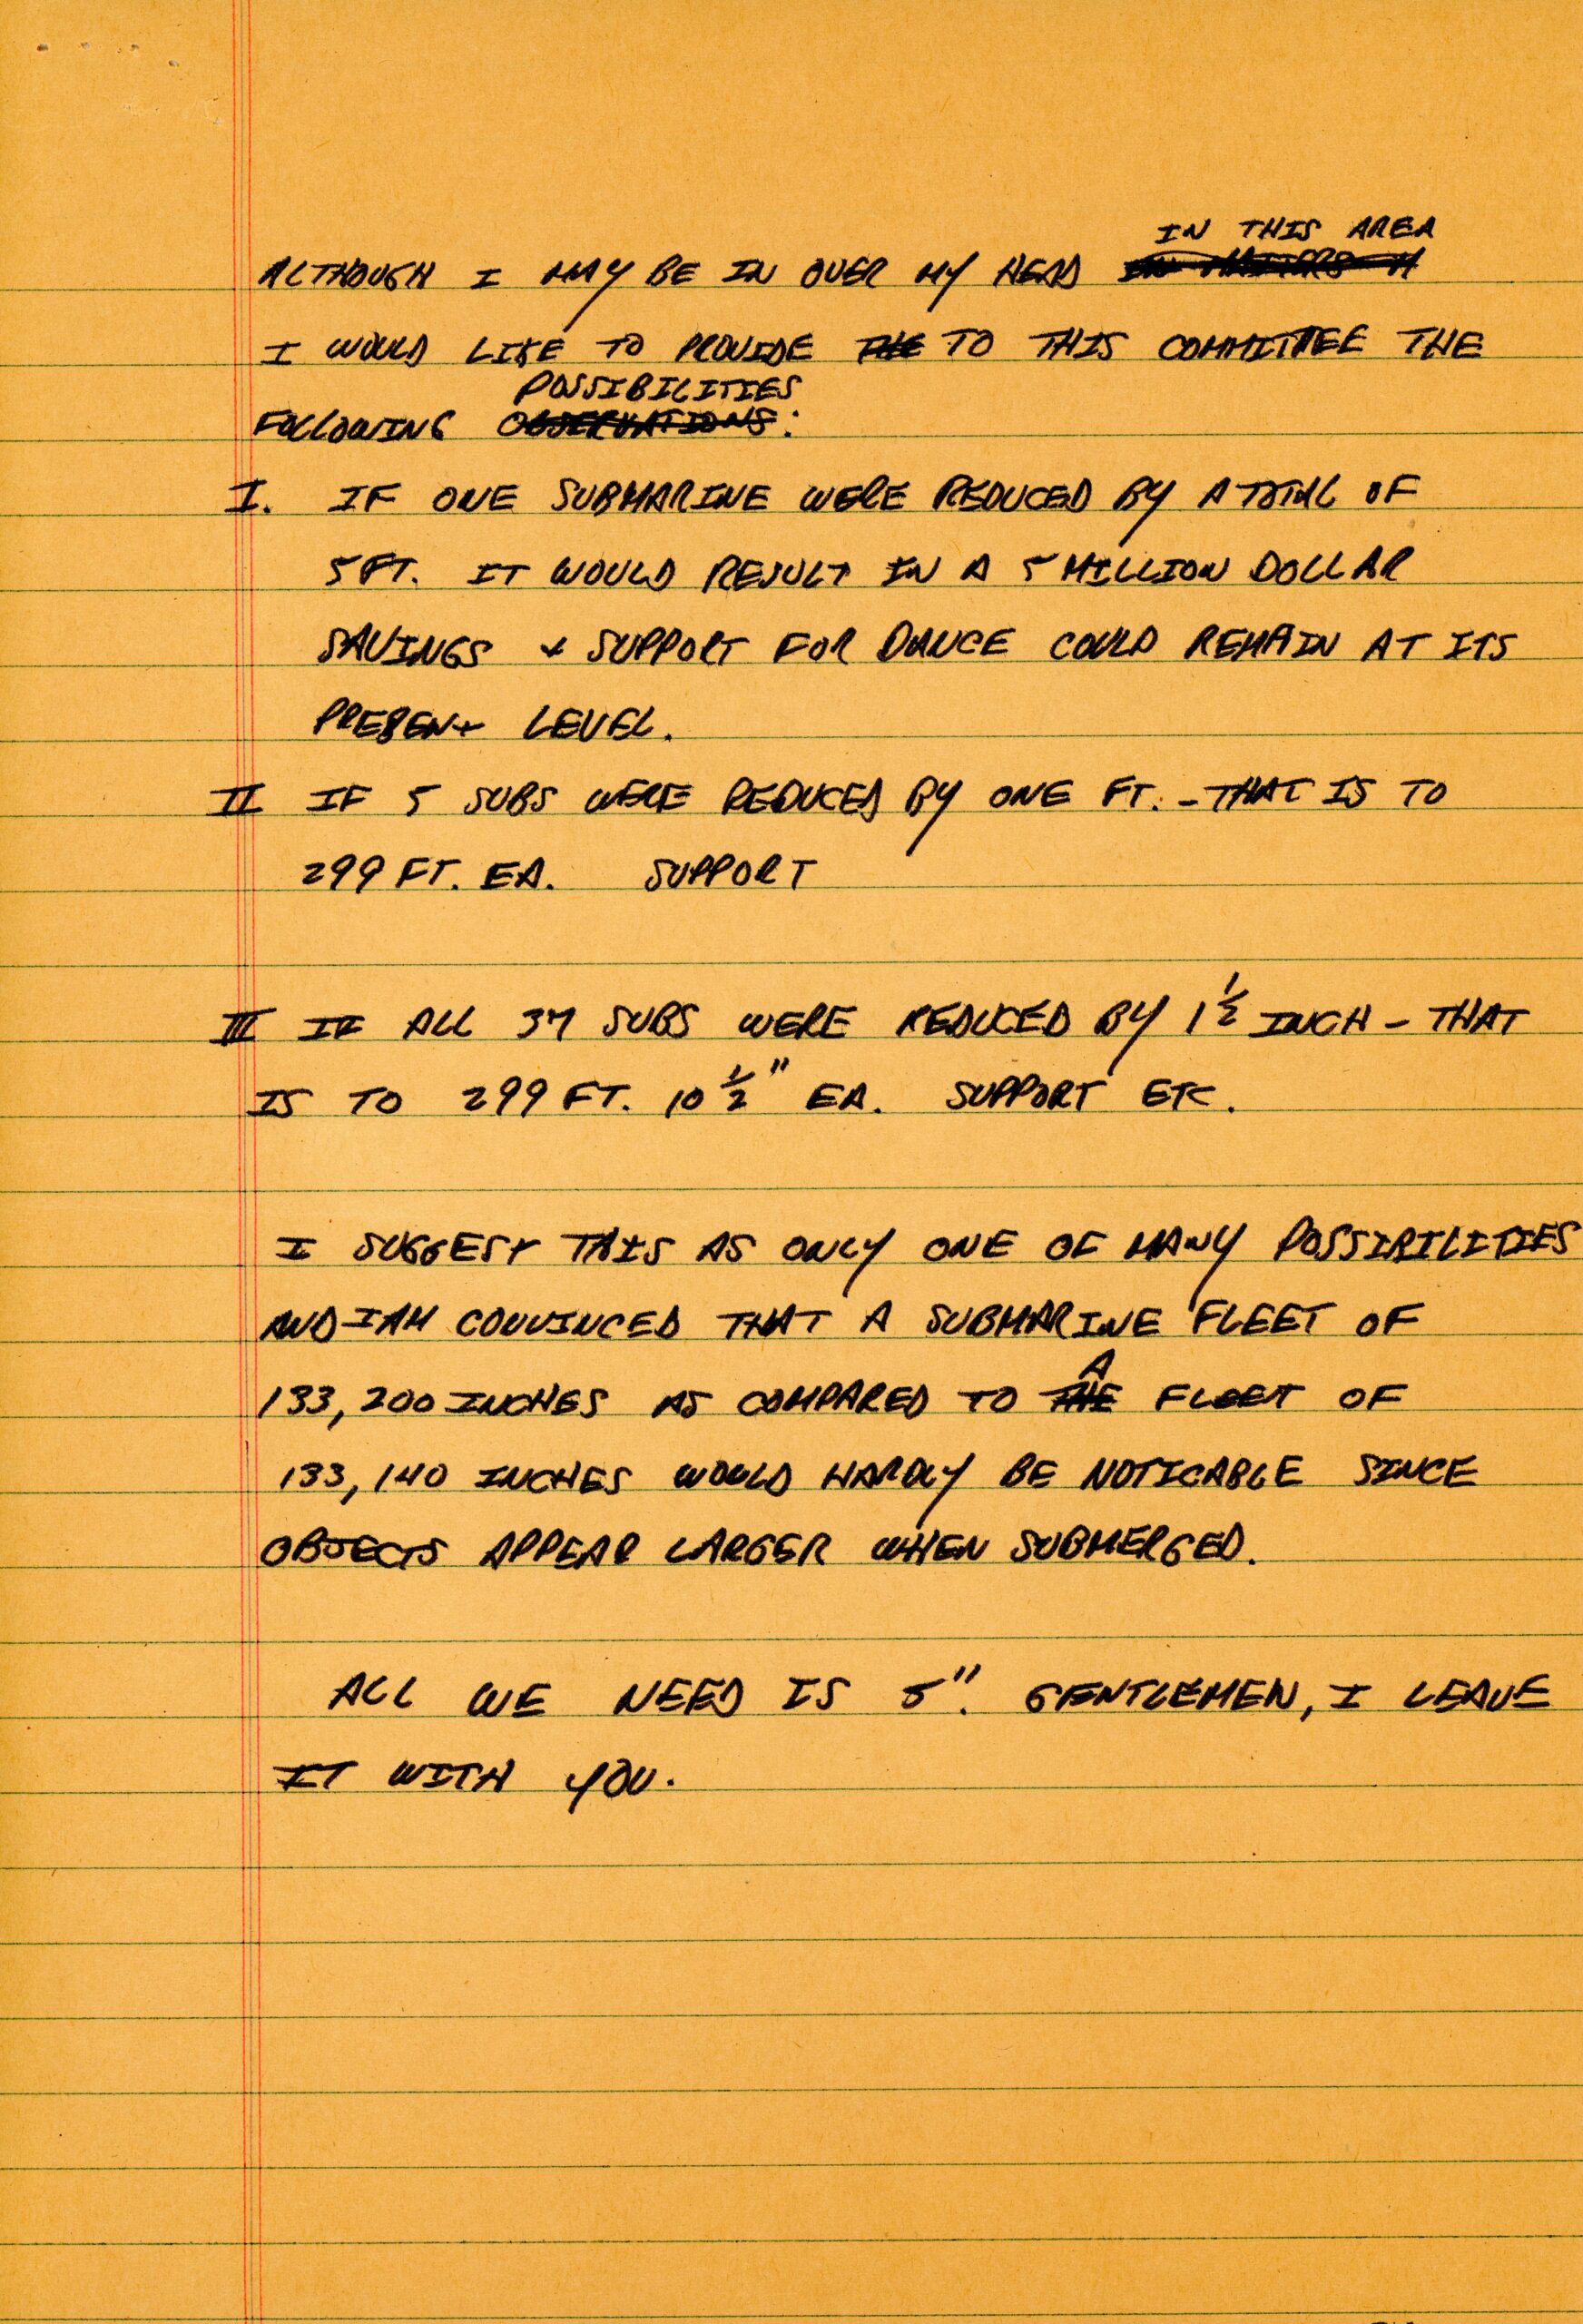 IN THIS AREA
ALTHOUGH I MAY BE IN OVER MY HEAD
I WOULD LIKE TO PROVIDE THE TO THIS COMMITTEE THE
POSSIBILITIES
FOLLOWING OBSERVATIONS:
I. IF ONE SUBMARINE WERE REDUCED BY A TOTAL OF
5 FT. IT WOULD RESULT IN A 5 MILLION DOLLAR
SAVINGS + SUPPORT FOR DANCE COULD REMAIN AT ITS
PRESENT LEVEL.
II IF 5 SUBS WERE REDUCED BY ONE FT. - THAT IS TO
299 FT. EA. SUPPORT
III IF ALL 37 SUBS WERE REDUCED BY 1 1/2 INCH - THAT
IS TO 299 FT. 10 1/2" EA. SUPPORT ETC.
I SUGGEST THIS AS ONLY ONE OF MANY POSSIBILITIES
AND I AM CONVINCED THAT A SUBMARINE FLEET OF
A
133,200 INCHES AS COMPARED TO THE FLEET OF
133,140 INCHES WOULD HARDLY BE NOTICABLE SINCE
OBJECTS APPEAR LARGER WHEN SUBMERGED.
ALL WE NEED IS 5". GENTLEMEN, I LEAVE
IT WITH YOU.